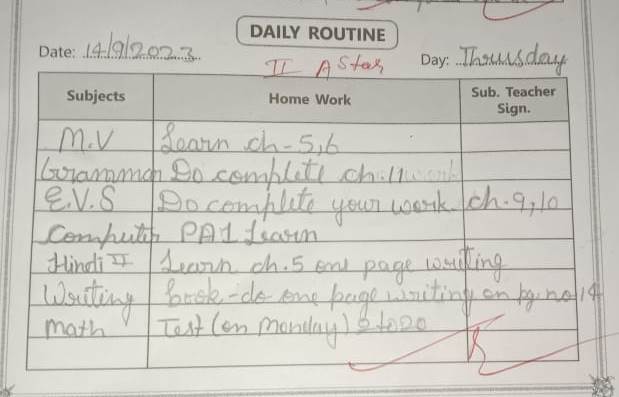 DAILY ROUTINE
Date: 14/9/2023 Day: Thrusday
II A Star
Subjects Home Work Sub. Teacher Sign.
M.V Learn ch-5,6
Grammar Do complete ch.11 work
E.V.S Do complete your work ch.9,10
Computer PA1 Learn
Hindi II Learn ch.5 one page writing
Writing book-do one page writing on pg.no 14
math Test (on monday) 2 to 20